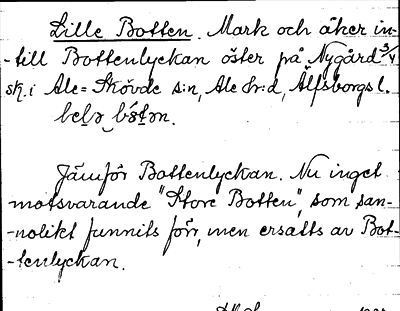 Lille Botten. Mark och åker in-
-till Bottenlyckan öster på Nygård 3/4
sk. i Ale-Skövde s:n, Ale h:d, Älfsborgs l.
Jämför Bottenlyckan. Nu inget
motsvarande "Store Botten", som san-
-nolikt funnits förr, men ersatts av Bot-
-tenlyckan.